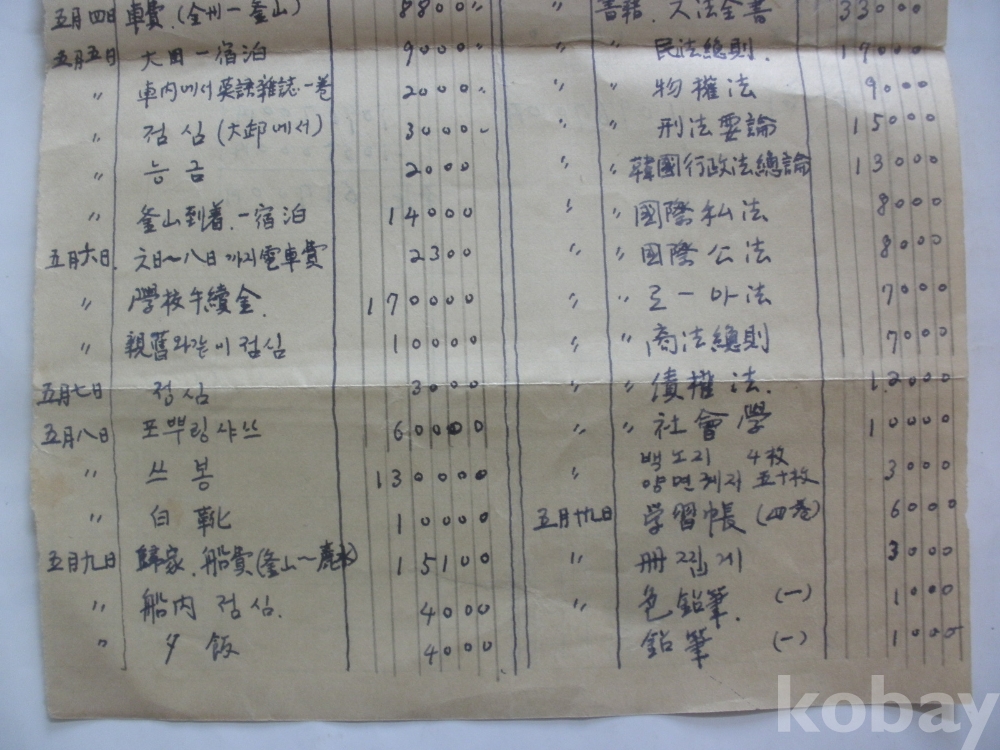 五月四日 車費.(全州ー釜山) 8800〃
五月五日 大田一宿泊 90000
〃 車内에서 英語雜誌一卷 20000
〃 점심(大邱에서) 30000
〃 능금 2000
〃 釜山到着.一宿泊 14000
五月六日. 六日~八日까지電車費 2300
〃 學校手續金. 170000
〃 親舊와같이 점심 10000
五月七日 점심 3000
五月八日 포뿌링샤쓰 60000
〃 쓰봉 130000
〃 白靴 10000
五月九日 歸家.船費(釜山~麗水) 15100
〃 船内 점심. 4000
〃 夕飯 4000
書籍. 六法全書 33000
〃 〃 民法總則. 17000
〃 〃 物權法 9000
〃 〃 刑法要論 15000
〃 〃 韓國行政法總論 13000
〃 〃 國際私法 8000
〃 〃 國際公法 8000
〃 〃 로ー마法 7000
〃 〃 商法總則 7000
〃 〃 債權法. 12000
〃 〃 社會學 10000
〃 백노지 4枚
양면케지 五十枚 3000
五月廿九日 学習帳(四卷) 6000
〃 册찝게 3000
〃 色鉛筆. (一) 1000
鉛筆 (一) 1000
kobay